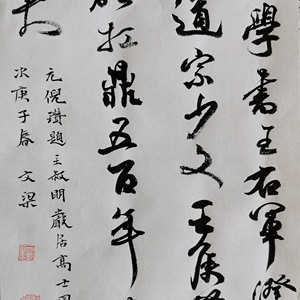 學書王右軍澄
道宗少文王侯
扛鼎五百年
元倪瓚題王叔明巖居高士圖
次庚子春 文梁